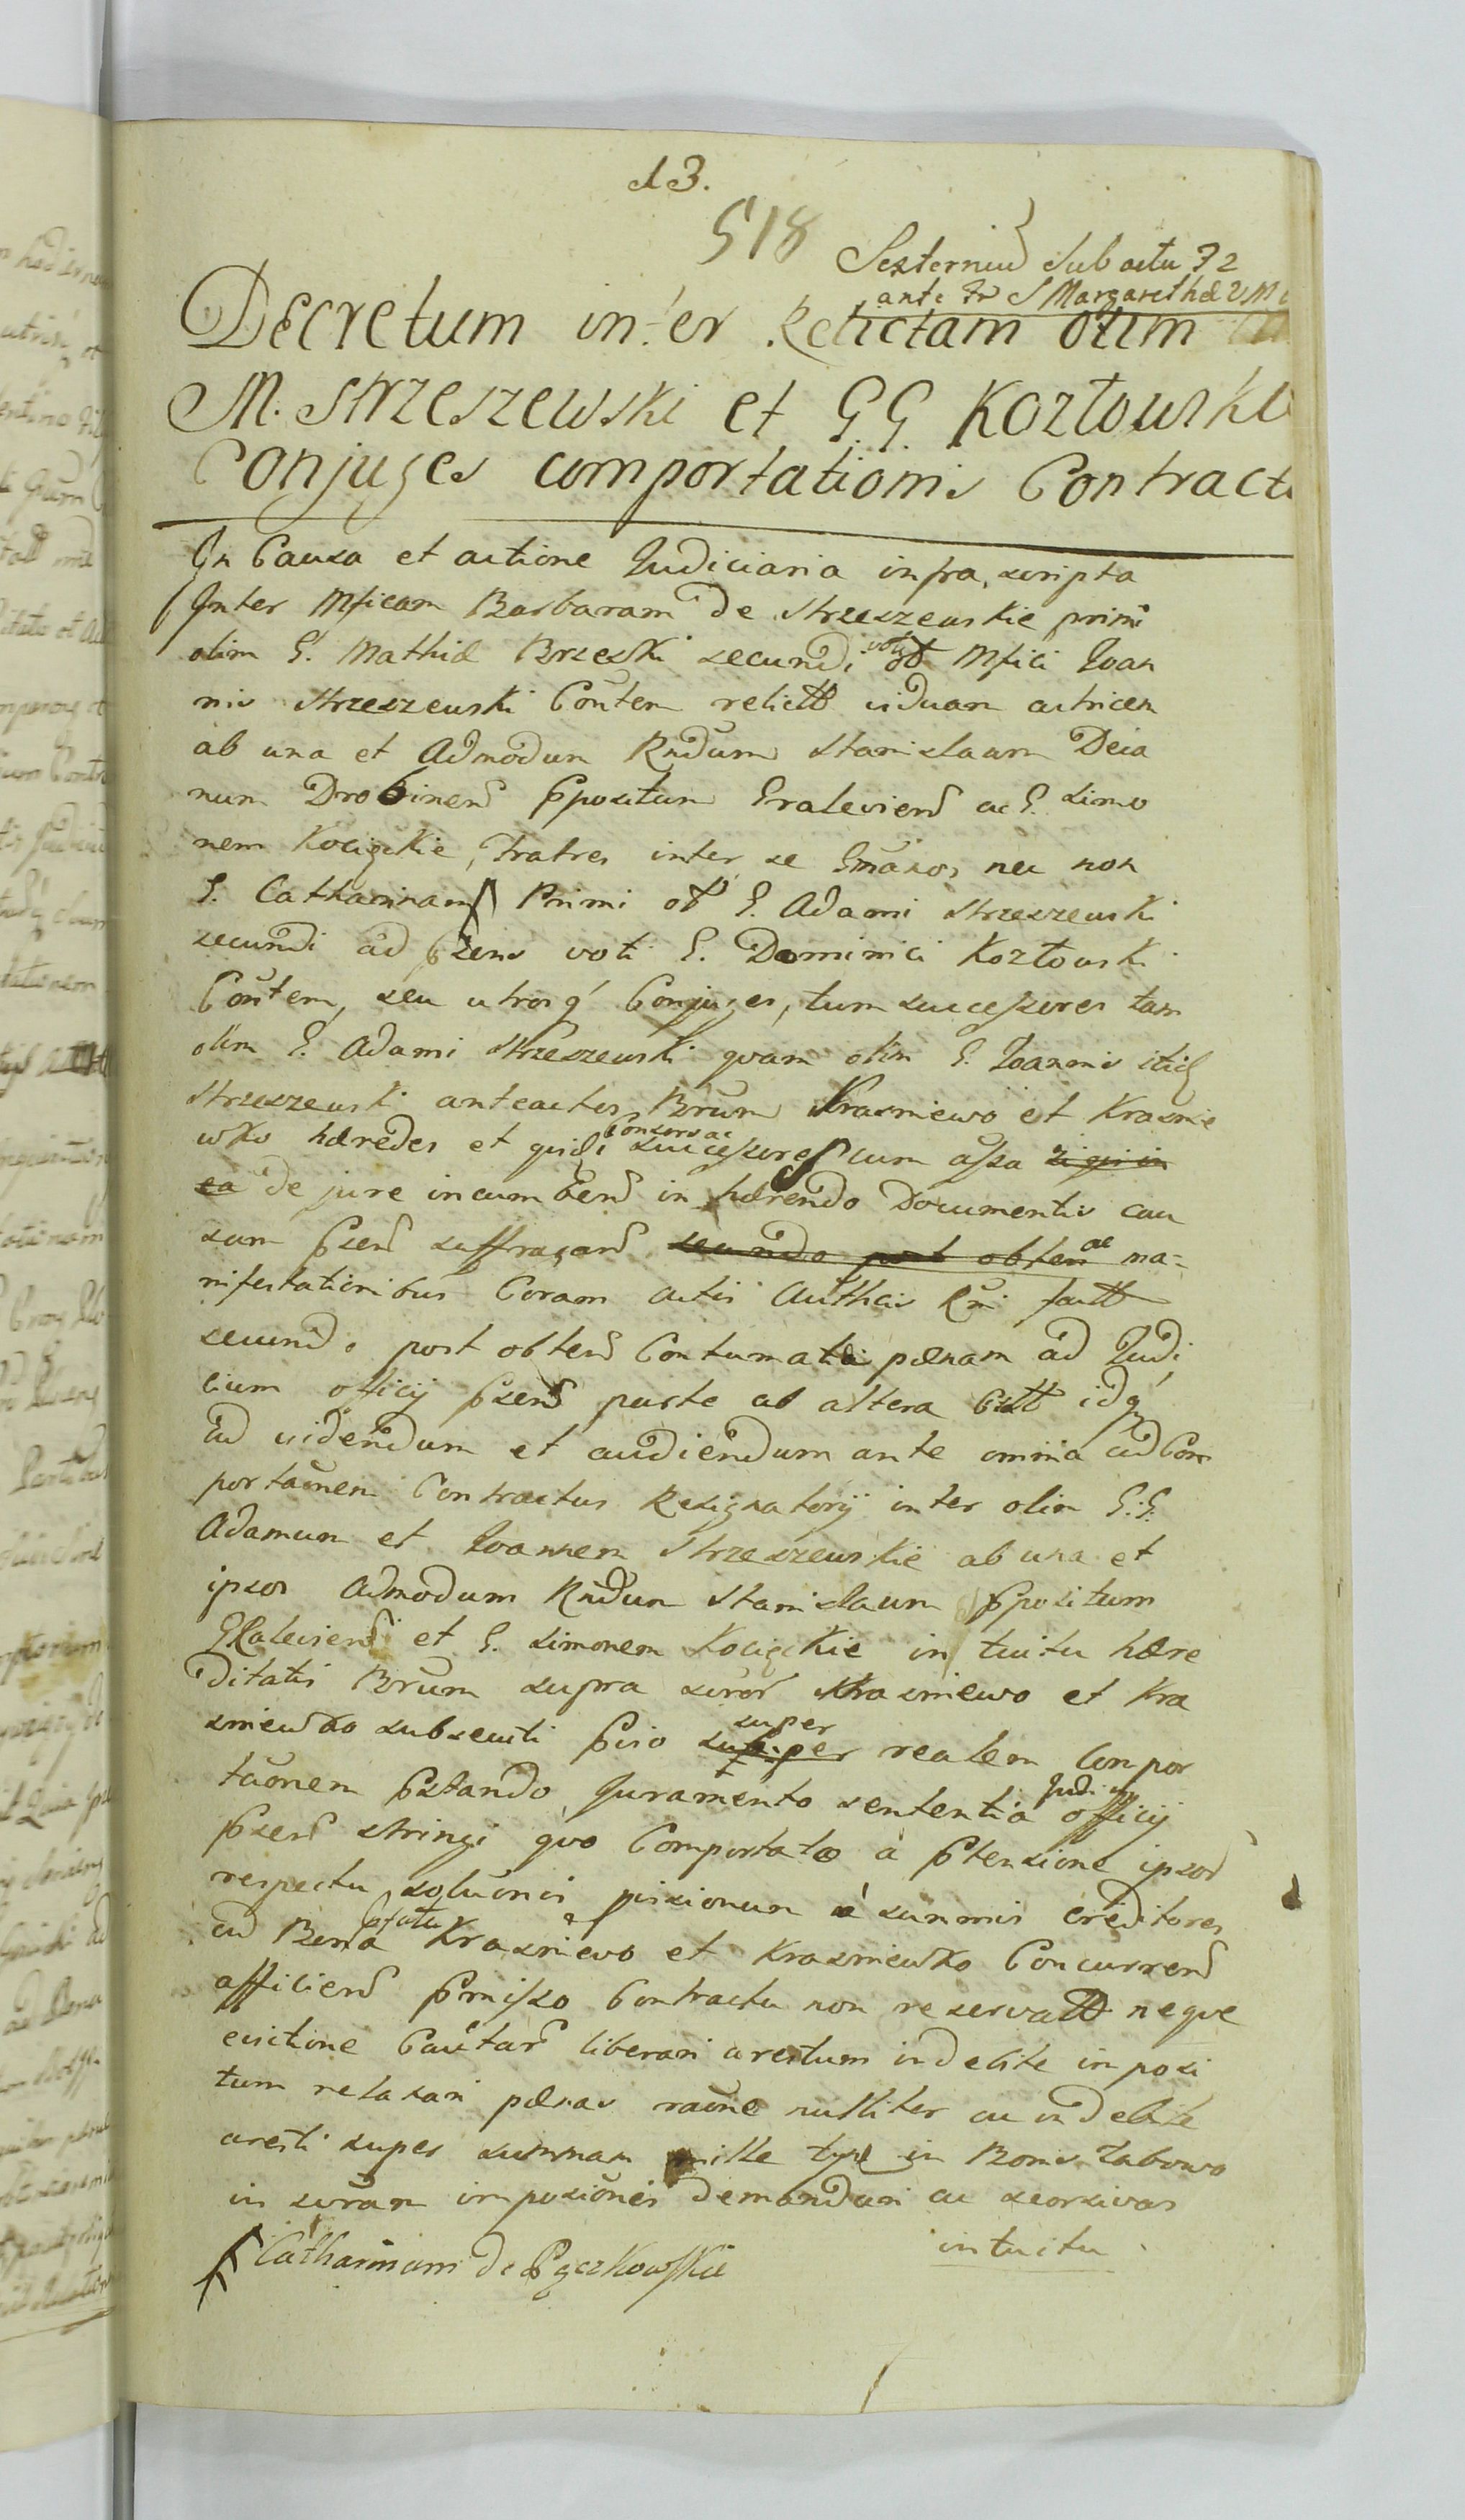 13.
518
Sexterniu Sub actu 72
ante Fr S Margarethæ V M
Decretum inter Relictam olim
M. Strzeszewski et G.G. Kozłowskie
Conjuges comportationis Contract
In Causa et actione Judiciaria infra scripta
Inter Mficam Barbaram de Strzeszewskie primi
olim G. Mathiæ Brzeski secundi voti Mfici Joan
nis Strzeszewski Contem relictt viduam actricem
ab una et Admodum Rndum Stanislaum Deca
num Drobinens Ppositum Graleviens ac G. Simo
nem Kocięckie, Fratres inter se Gmanos nec non
G. Catharinam Primi ol G. Adami Strzeszewski
secundi ad Pzens voti G. Dominici Kozłowski
Contem, seu utrosq Conjuges, tum successores tam
olim G. Adami Strzeszewski quam olim G. Joannis itid
Strzeszewski anteactos Brum Krasniewo et Krasnie
wko hæredes et quidi Consors ac successores cum assa
ea de jure incumbens in hærendo Documentis cau
sam Pzens suffragans secundo post obtens ac ma=
nifestationibus Coram actis Authcis Rni factt
secundo post obtens Contumatiæ pænam ad Judi
cium officij Pzens parte ab altera Citt idq
Ad videndum et audiendum ante omnia ad Com
portaonem Contractus Resignatorij inter olim G.G.
Adamum et Joannem Strzeszewskie ab una et
ipsos Admodum Rndum Stanislaum Ppositum
Graleviens et G. Simonem Kocięckie in tuitu hære
ditatis Brum supra scror Krasniewo et Kra
sniewko subsecuti Pvio super super realem Compor
taonem Pstando Juramento sententia Judij officij
Pzens stringi quo Comportato a Ptensione ipsor
respectu solutionis pvisionum a summis creditores
ad Bona Pfata Krasniewo et Krasniewko Concurrens
afficiens Pmisso Contractu non reservatt neque
evictione Cautar liberari arestum indebite imposi
tum relaxari pænas raone nulliter ac indebite
aresti super summam mille tynf in Bonis Łabowo
in scram impositionis demandari ac seorsivas
intuitu
Catharinam de Pączkowskie